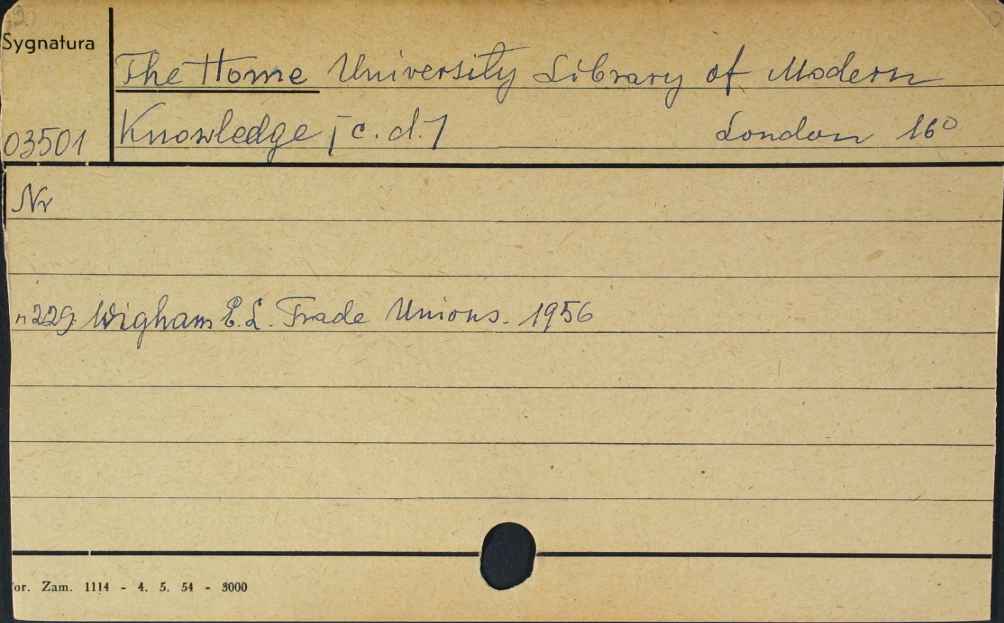 Sygnatura
The Home University Library of Modern
03501 Knowledge [c.d.] London 16°
Nr
n229. Wigham E.L. Trade Unions. 1956
or. Zam. 1114 - 4. 5. 54 - 3000